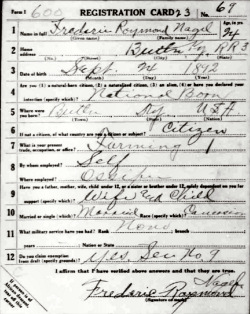 Form 1 600 REGISTRATION CARD 23 No. 69
1 Name in full Frederic Raymond Nagel Age, in yrs. 24
(Given name) (Family name)
2 Home address Butler Ky RR 3
(No.) (Street) (City) (State)
3 Date of birth Sept. 24 1892
(Month) (Day) (Year)
4 Are you (1) a natural-born citizen, (2) a naturalized citizen, (3) an alien, (4) or have you declared your
intention (specify which)? Natural Born
5 Where were you born? Butler Ky. USA
(Town) (State) (Nation)
6 If not a citizen, of what country are you a citizen or subject? Citizen
7 What is your present trade, occupation, or office? Farming 1
8 By whom employed? Self
Where employed?
9 Have you a father, mother, wife, child under 12, or a sister or brother under 12, solely dependent on you for
support (specify which)? Wife and Child
10 Married or single (which)? Married Race (specify which)? Caucasian
11 What military service have you had? Rank None branch
years Nation or State
12 Do you claim exemption from draft (specify grounds)? Yes. No 9
I affirm that I have verified above answers and that they are true.
Frederic Raymond Nagel
(Signature or mark)